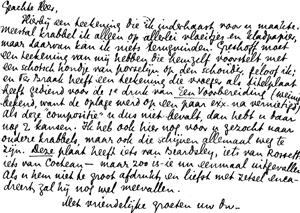 Geachte Kees,
Hierbij een teekening die ik inderhaast voor u maakte.
Meestal krabbel ik alleen op allerlei vlaeitjes en kladpapier,
maar daarvan kan ik niets terugvinden. Greshoff moet
een teekening van mij hebben die hemzelf voorstelt met
een schotsch hondje van porselein op den schouder, geloof ik;
en Ter Braak heeft een teekening die vroeger als titelplaat
heeft gediend voor de 1e druk van Een Voorbereiding (weinig
bekend, want de oplage werd op een paar exx. na vernietigd)
als deze "compositie" u dus niet bevalt, dan hebt u daar
nog 2 kansen. Ik heb ook hier nog voor u gezocht naar
andere krabbels, maar ook die schijnen allemaal weg te
zijn. Deze plaat heeft iets van Beardsley, iets van Rossetti
iets van Cocteau — maar zoo is-ie nu eenmaal uitgevallen
Als u hem niet te groot afdrukt en liefst met zetsel omka-
dreert, zal hij nog wel meevallen.
Met vriendelijke groeten uw Dw.